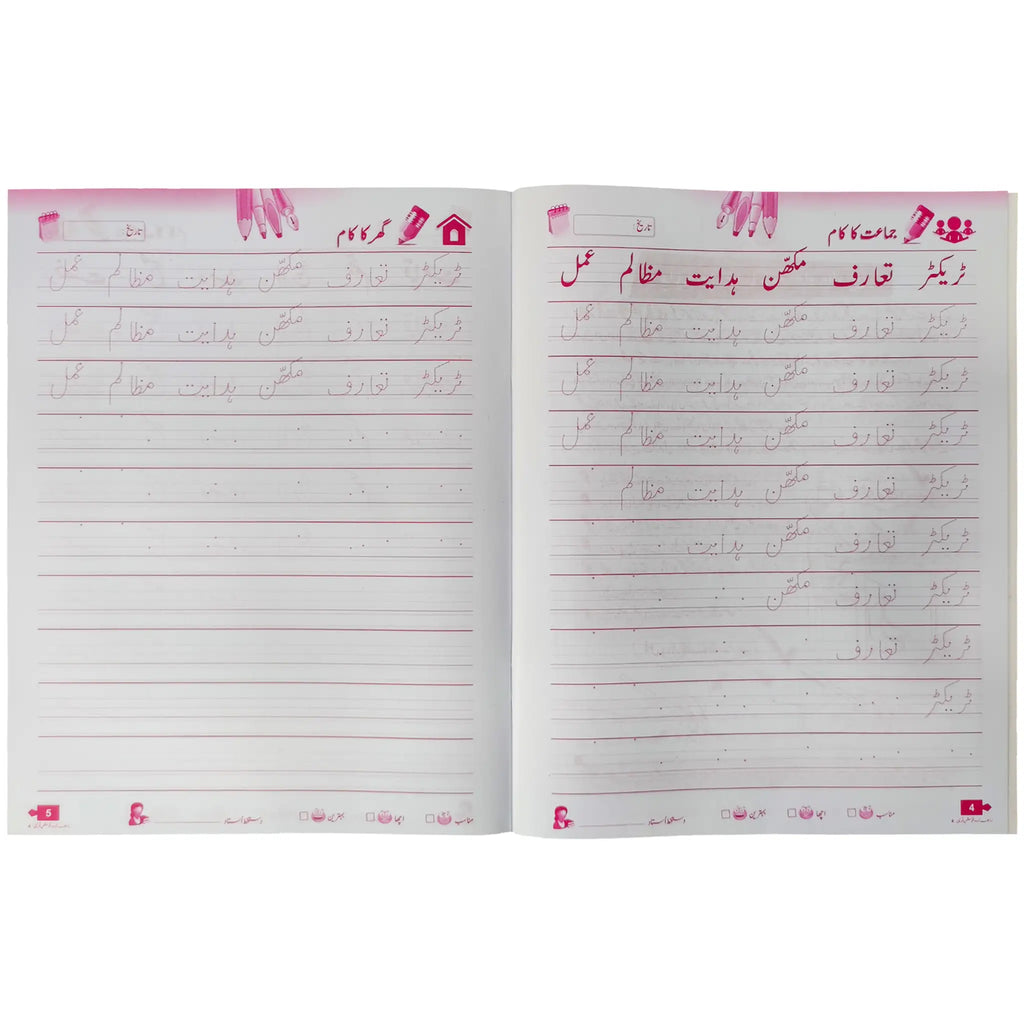 جماعت کا کام
تاریخ
ٹریکٹر تعارف مکھّن ہدایت مظالم عمل
ٹریکٹر تعارف مکھّن ہدایت مظالم عمل
ٹریکٹر تعارف مکھّن ہدایت مظالم عمل
ٹریکٹر تعارف مکھّن ہدایت مظالم عمل
ٹریکٹر تعارف مکھّن ہدایت مظالم
ٹریکٹر تعارف مکھّن ہدایت
ٹریکٹر تعارف مکھّن
ٹریکٹر تعارف
ٹریکٹر
4
مناسب اچھا بہترین دستخط اُستاد
گھر کا کام
تاریخ
ٹریکٹر تعارف مکھّن ہدایت مظالم عمل
ٹریکٹر تعارف مکھّن ہدایت مظالم عمل
ٹریکٹر تعارف مکھّن ہدایت مظالم عمل
مناسب اچھا بہترین دستخط اُستاد
5